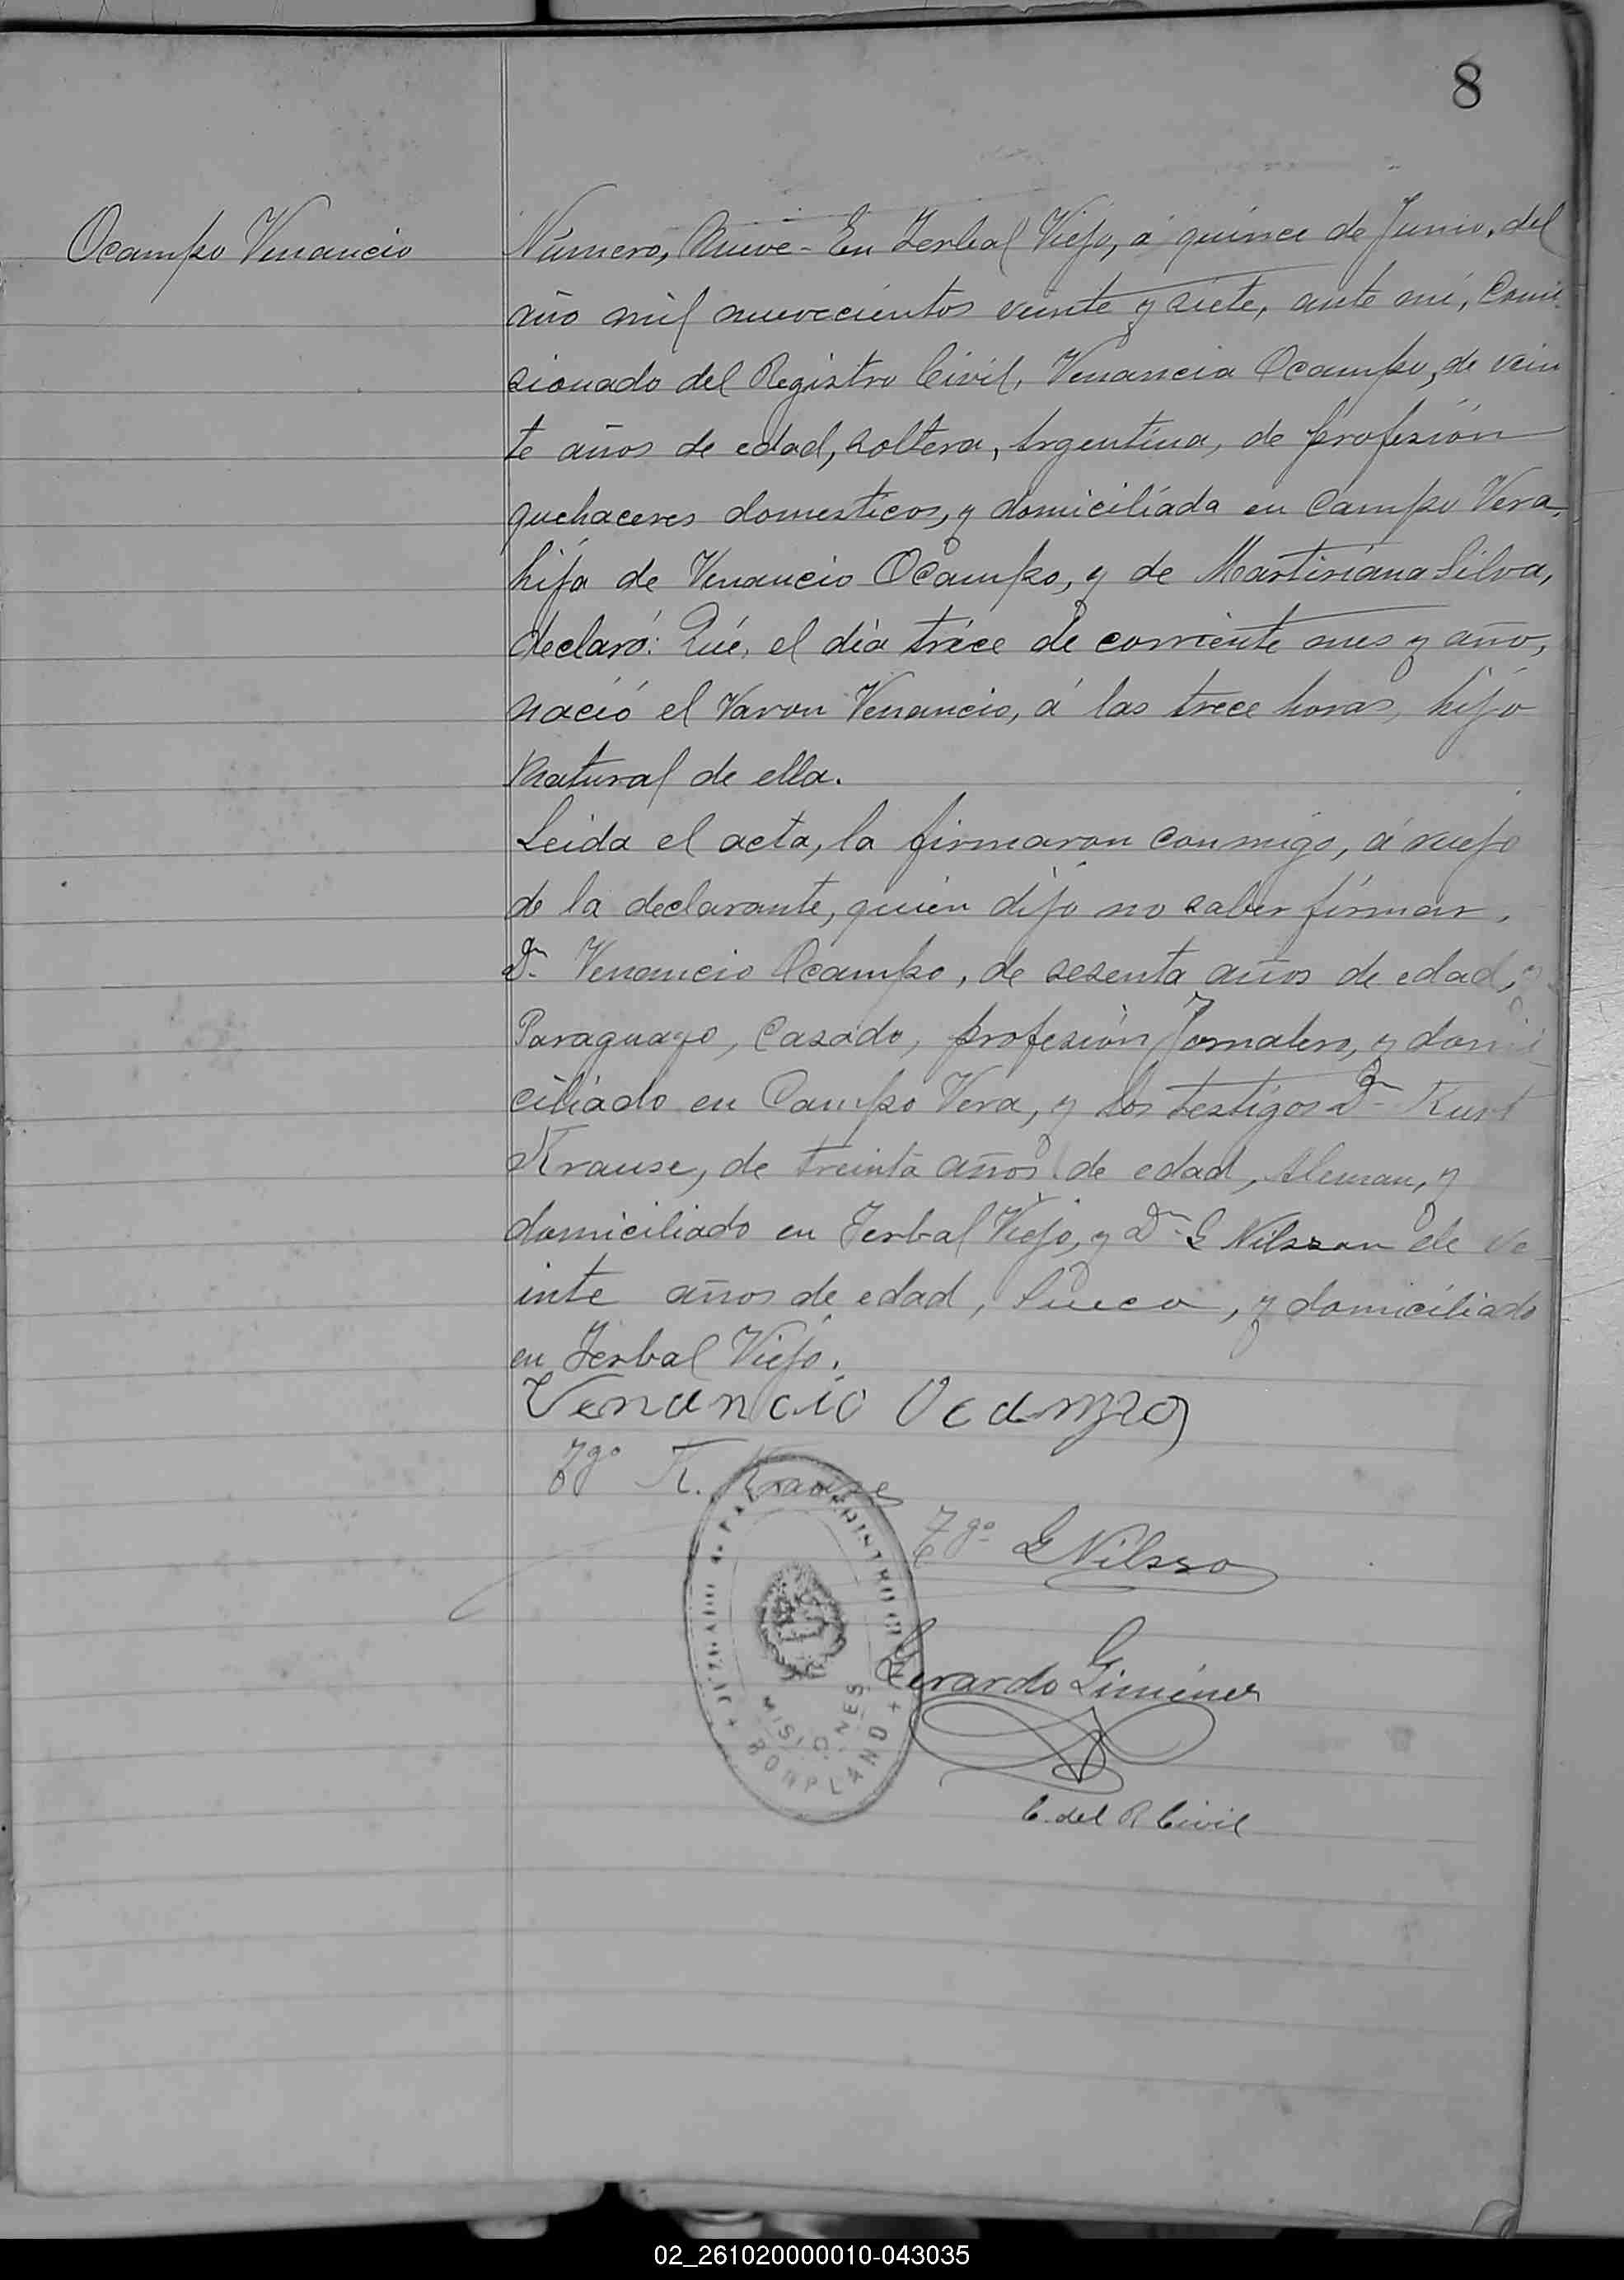 8
Ocampo Venancio
Número, Nueve - En Yerbal Viejo, á quince de Junio, del
año mil nuevecientos veinte y siete, ante mí, Comi
sionado del Registro Civil, Venancia Ocampo, de vein
te años de edad, soltera, Argentina, de profesión
quehaceres domesticos, y domiciliada en Campo Vera,
hija de Venancio Ocampo, y de Martiriana Silva,
declaró: Qué, el día tréce de corriente mes y año,
nació el Varon Venancio, á las trece horas, hijo
natural de ella.
Leida el acta, la firmaron conmigo, á ruejo
de la declarante, quien dijo no saber firmar,
Dn Venancio Ocampo, de sesenta años de edad,
Paraguayo, Casado, profesión Jornalero, y domi
ciliado en Campo Vera, y los testigos Dn Kurt
Krause, de treinta años de edad, Aleman, y
domiciliado en Yerbal Viejo, y Dn G Nilsson de ve
inte años de edad, Sueco, y domiciliado
en Yerbal Viejo.
Venancio Ocampo
Tgo K. Krause
Tgo G Nilsso
Gerardo Giménez
C. del R Civil
MISIONES
BONPLAND
02_261020000010-043035